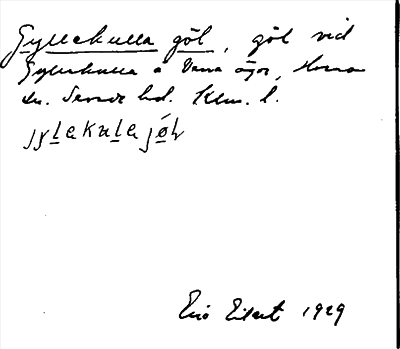 Gyllekulla göl, göl vid
Gyllekulla å Vena ägor,
sn. Sevede hd. Klm. l.
jylekulajöl
Eric Eilert 1929